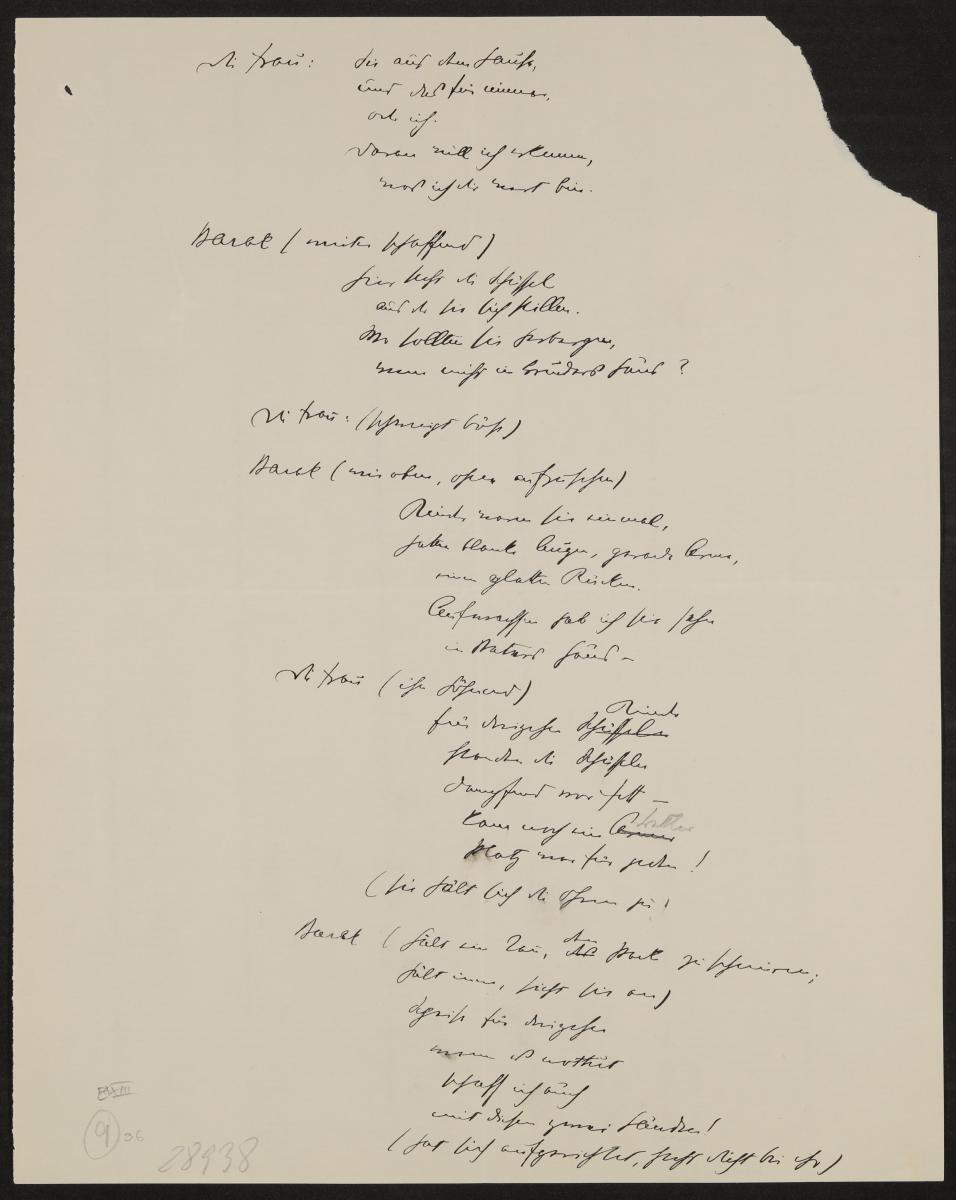 die Frau: Sie aus dem Hause,
und das für immer,
oder ich.
Daran will ich erkennen,
was ich dir wert bin.
Barak (weiter schaffend)
Hier steht die Schüssel
aus der sie sich stillen.
Wo sollten sie herbergen,
wenn nicht in Bruders Haus?
die Frau: (schweigt böse)
Barak (wie oben, ohne aufzusehen)
Kinder waren sie einmal,
hatten blanke Augen, gerade Arme,
einen glatten Rücken.
Aufwachsen hab ich sie sehn
in Vaters Haus –
die Frau (ihn höhnend)
Kinder
für dreizehn Schüsseln
standen die Schüsseln
dampfend vor Fett –
kam noch ein Armer Bettler
Platz war für jeden!
(sie hält sich die Ohren zu)
Barak (hält im Tun, das den Pack zu schnüren;
hält inne, sieht sie an)
Speise für dreizehn
wenn es nottut
schaff ich auch
mit diesen zwei Händen!
(hat sich aufgerichtet, steht dicht bei ihr)
9
36
28938